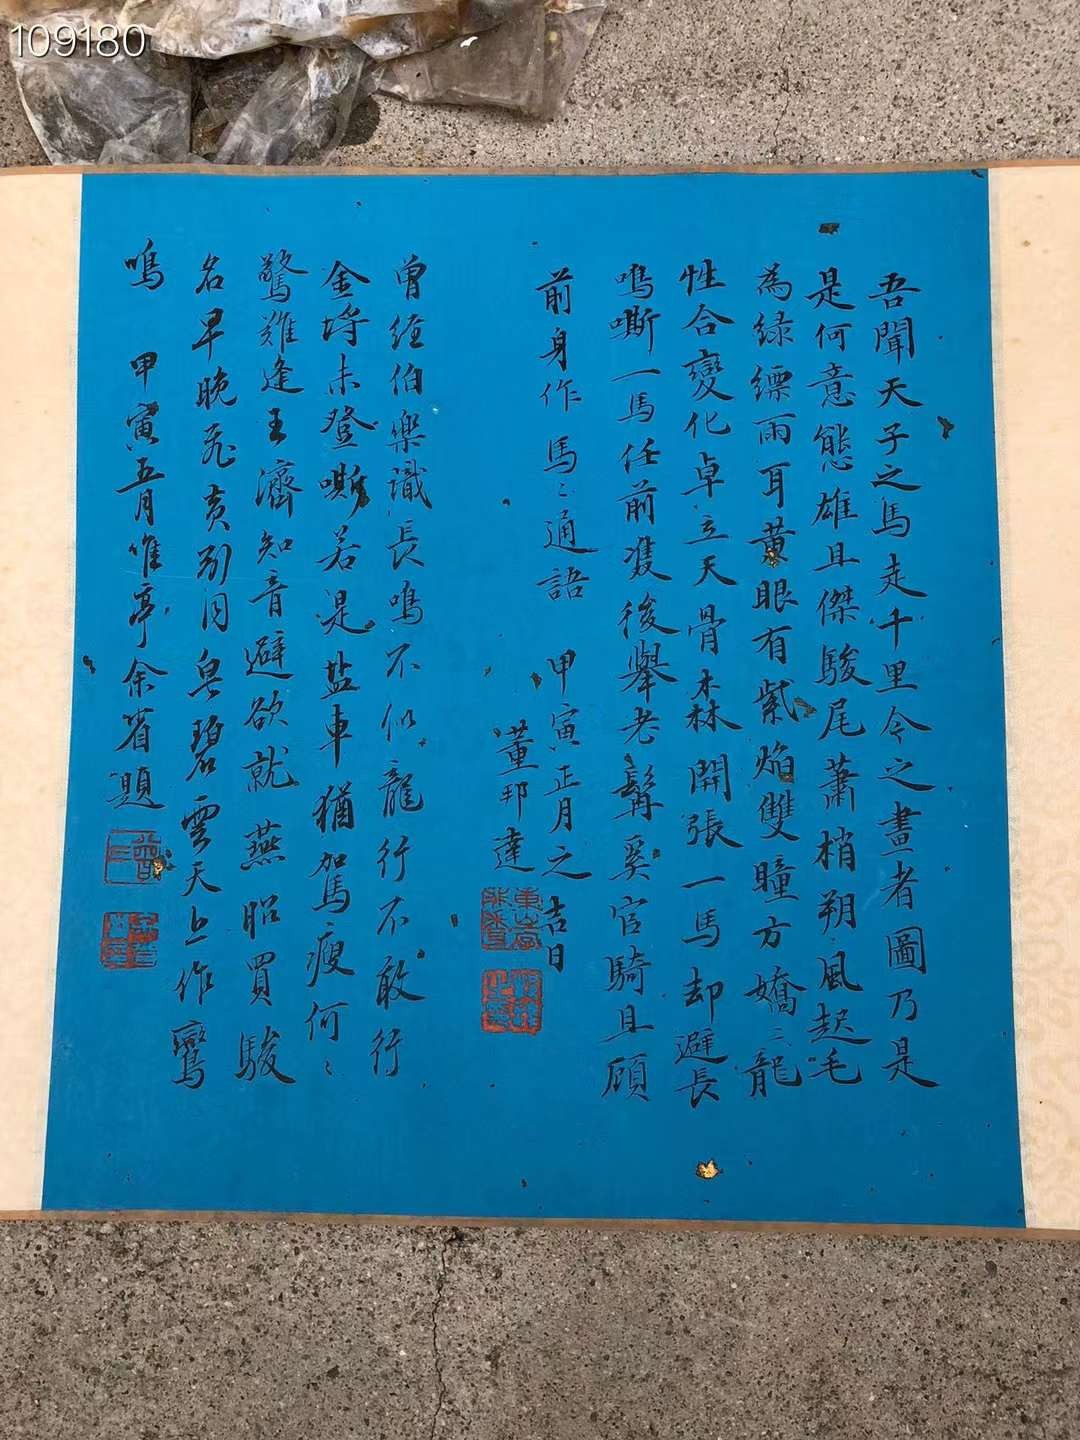 109180
吾聞天子之馬走千里今之畫者圖乃是
是何意態雄且傑駿尾蕭梢朔風起毛
為緑縹雨耳黄眼有紫焰雙瞳方嬌三龍
性合變化卓立天骨森開張一馬却避長
鳴嘶一馬任前雙後舉老髯奚官騎且顧
前身作馬〻通語 甲寅正月之吉日
董邦達
曾經伯樂識長鳴不似龍行不敢行
金埒未登嘶若是盐車猶駕瘦何〻
驚難逢王濟知音避欲就燕昭買駿
名早晚飛黄別同皂碧雲天上作鸞
鳴 甲寅五月惟亭余省題